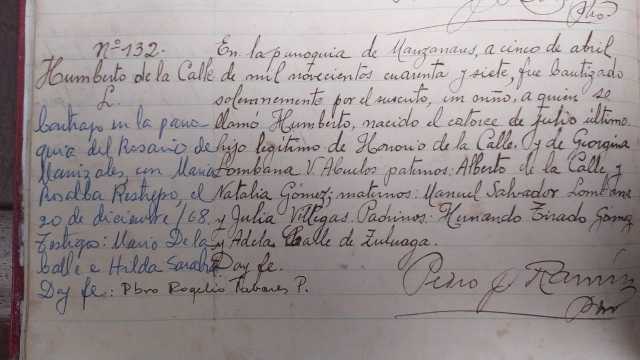 Pbro.
Nº 132.
Humberto de la Calle
L.
Contrajo en la parro
quia del Rosario de
Manizales, con Maria
Rosalba Restrepo, el
20 de diciembre/68.
Testigos: Mario De la
Calle e Hilda
Doy fe: Pbro Rogelio Tabares P.
En la parroquia de Manzanares, a cinco de abril
de mil novecientos cuarenta y siete, fue bautizado
solemnemente por el suscrito, un niño, a quien se
llamó Humberto, nacido el catorce de julio último
hijo legítimo de Honorio de la Calle y de Georgina
Lombana V. Abuelos paternos: Alberto de la Calle y
Natalia Gómez; maternos: Manuel Salvador Lombana
y Julia Villegas. Padrinos: Hernando Tirado Gómez
y Adela Calle de Zuluaga.
Doy fe.
Pedro J Ramír
Pbro